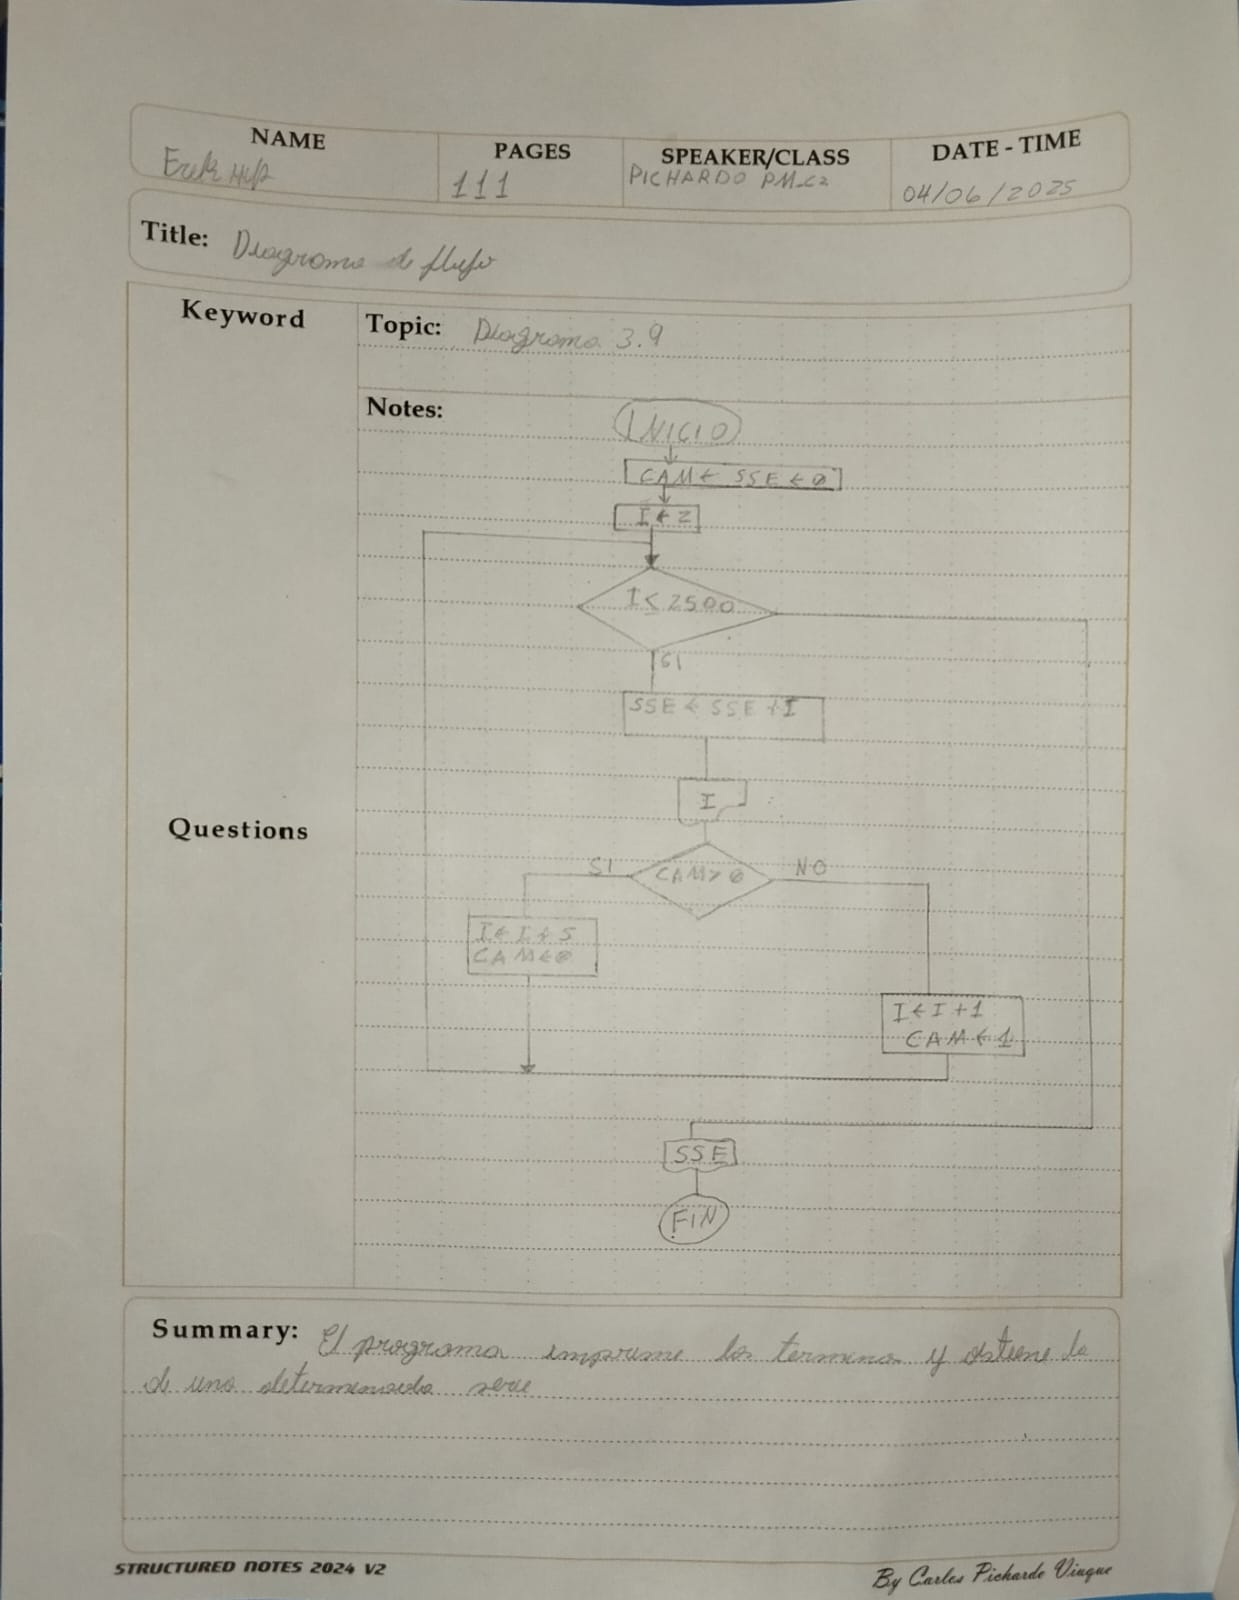 NAME
PAGES
SPEAKER/CLASS
DATE - TIME
Erik
111
PICHARDO PM-C2
04/06/2025
Title: Diagrama de flujo
Keyword
Topic: Diagrama 3.9
Notes:
INICIO
CAM ← SSE ← 0
I ← 2
I ≤ 2500
SI
SSE ← SSE + I
I
Questions
SI
CAM > 0
NO
I ← I + 5
CAM ← 0
I ← I + 1
CAM ← 1
SSE
FIN
Summary: El programa imprime los terminos y obtiene la
de una determinada serie
STRUCTURED NOTES 2024 V2
By Carlos Pichardo Viuque